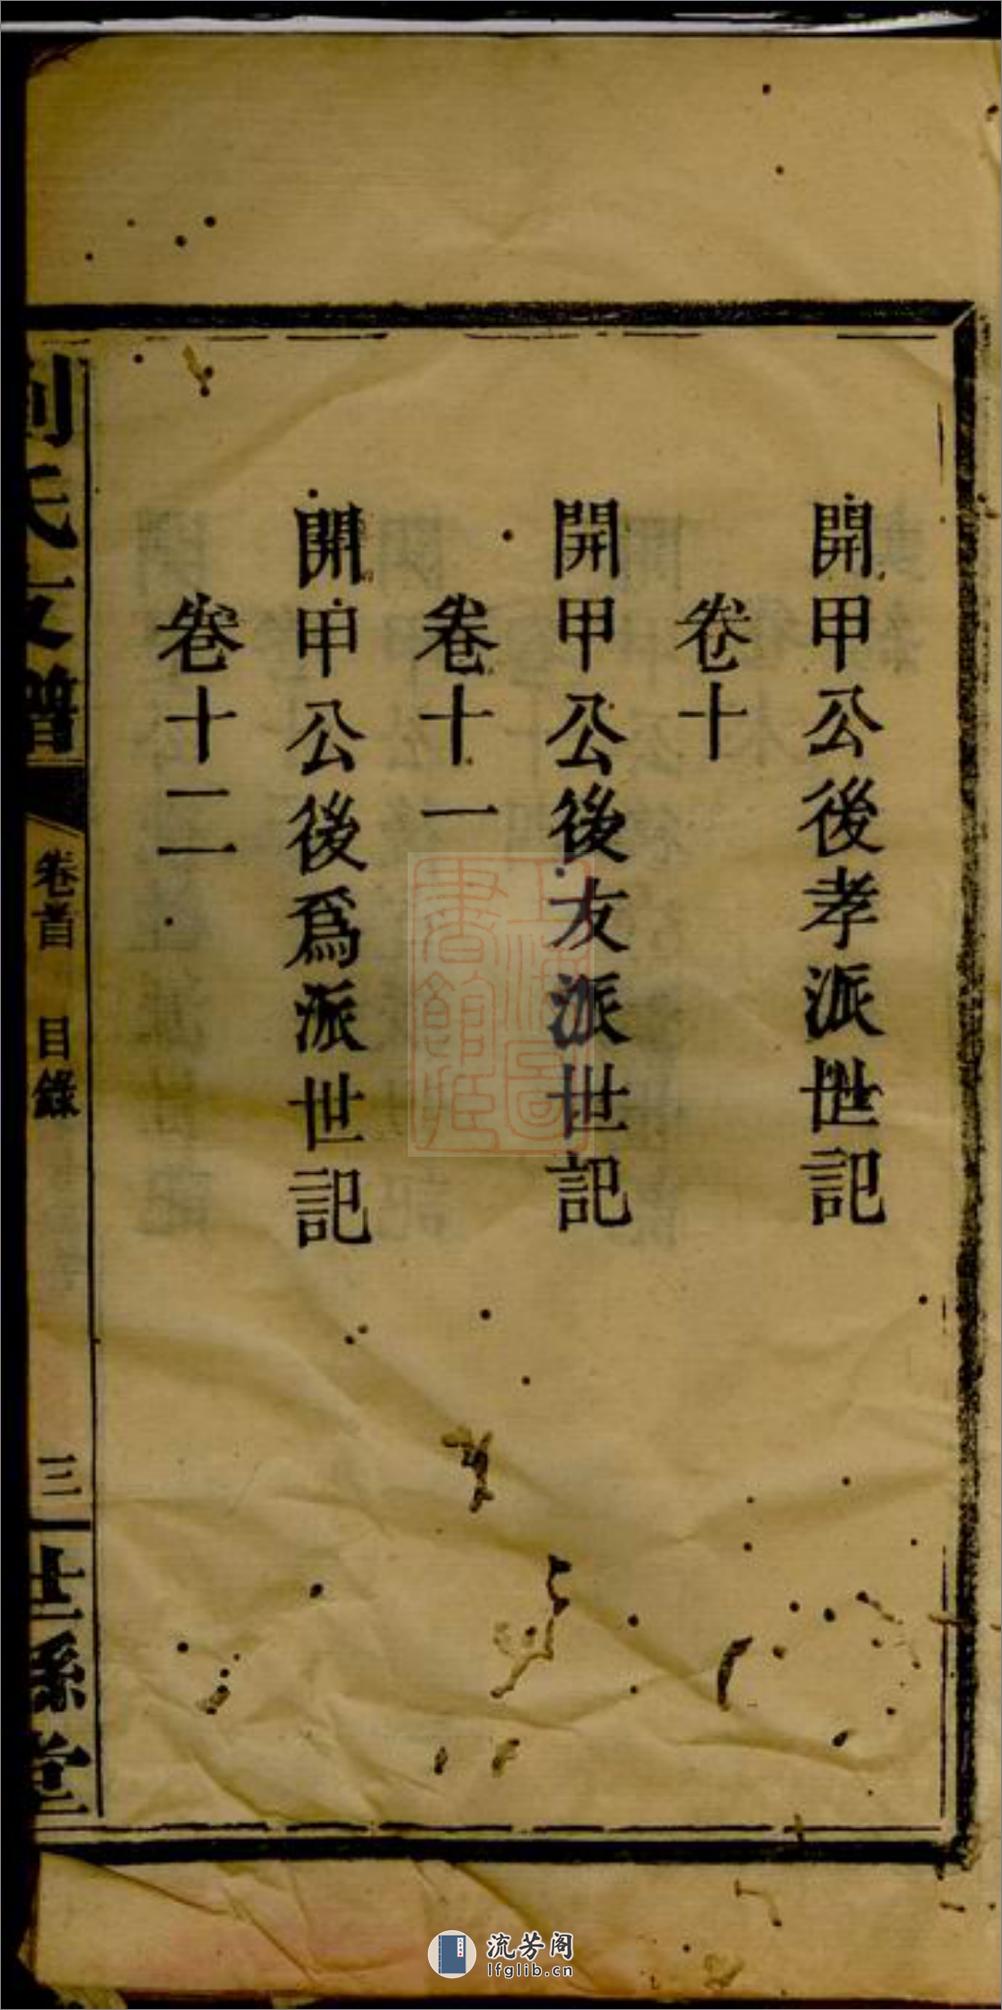 開甲公後孝派世記
卷十
開甲公後友派世記
卷十一
開甲公後爲派世記
卷十二
劉氏支譜
卷首
目錄
三
世系堂
上海圖書館藏
流芳阁
lfglib.cn